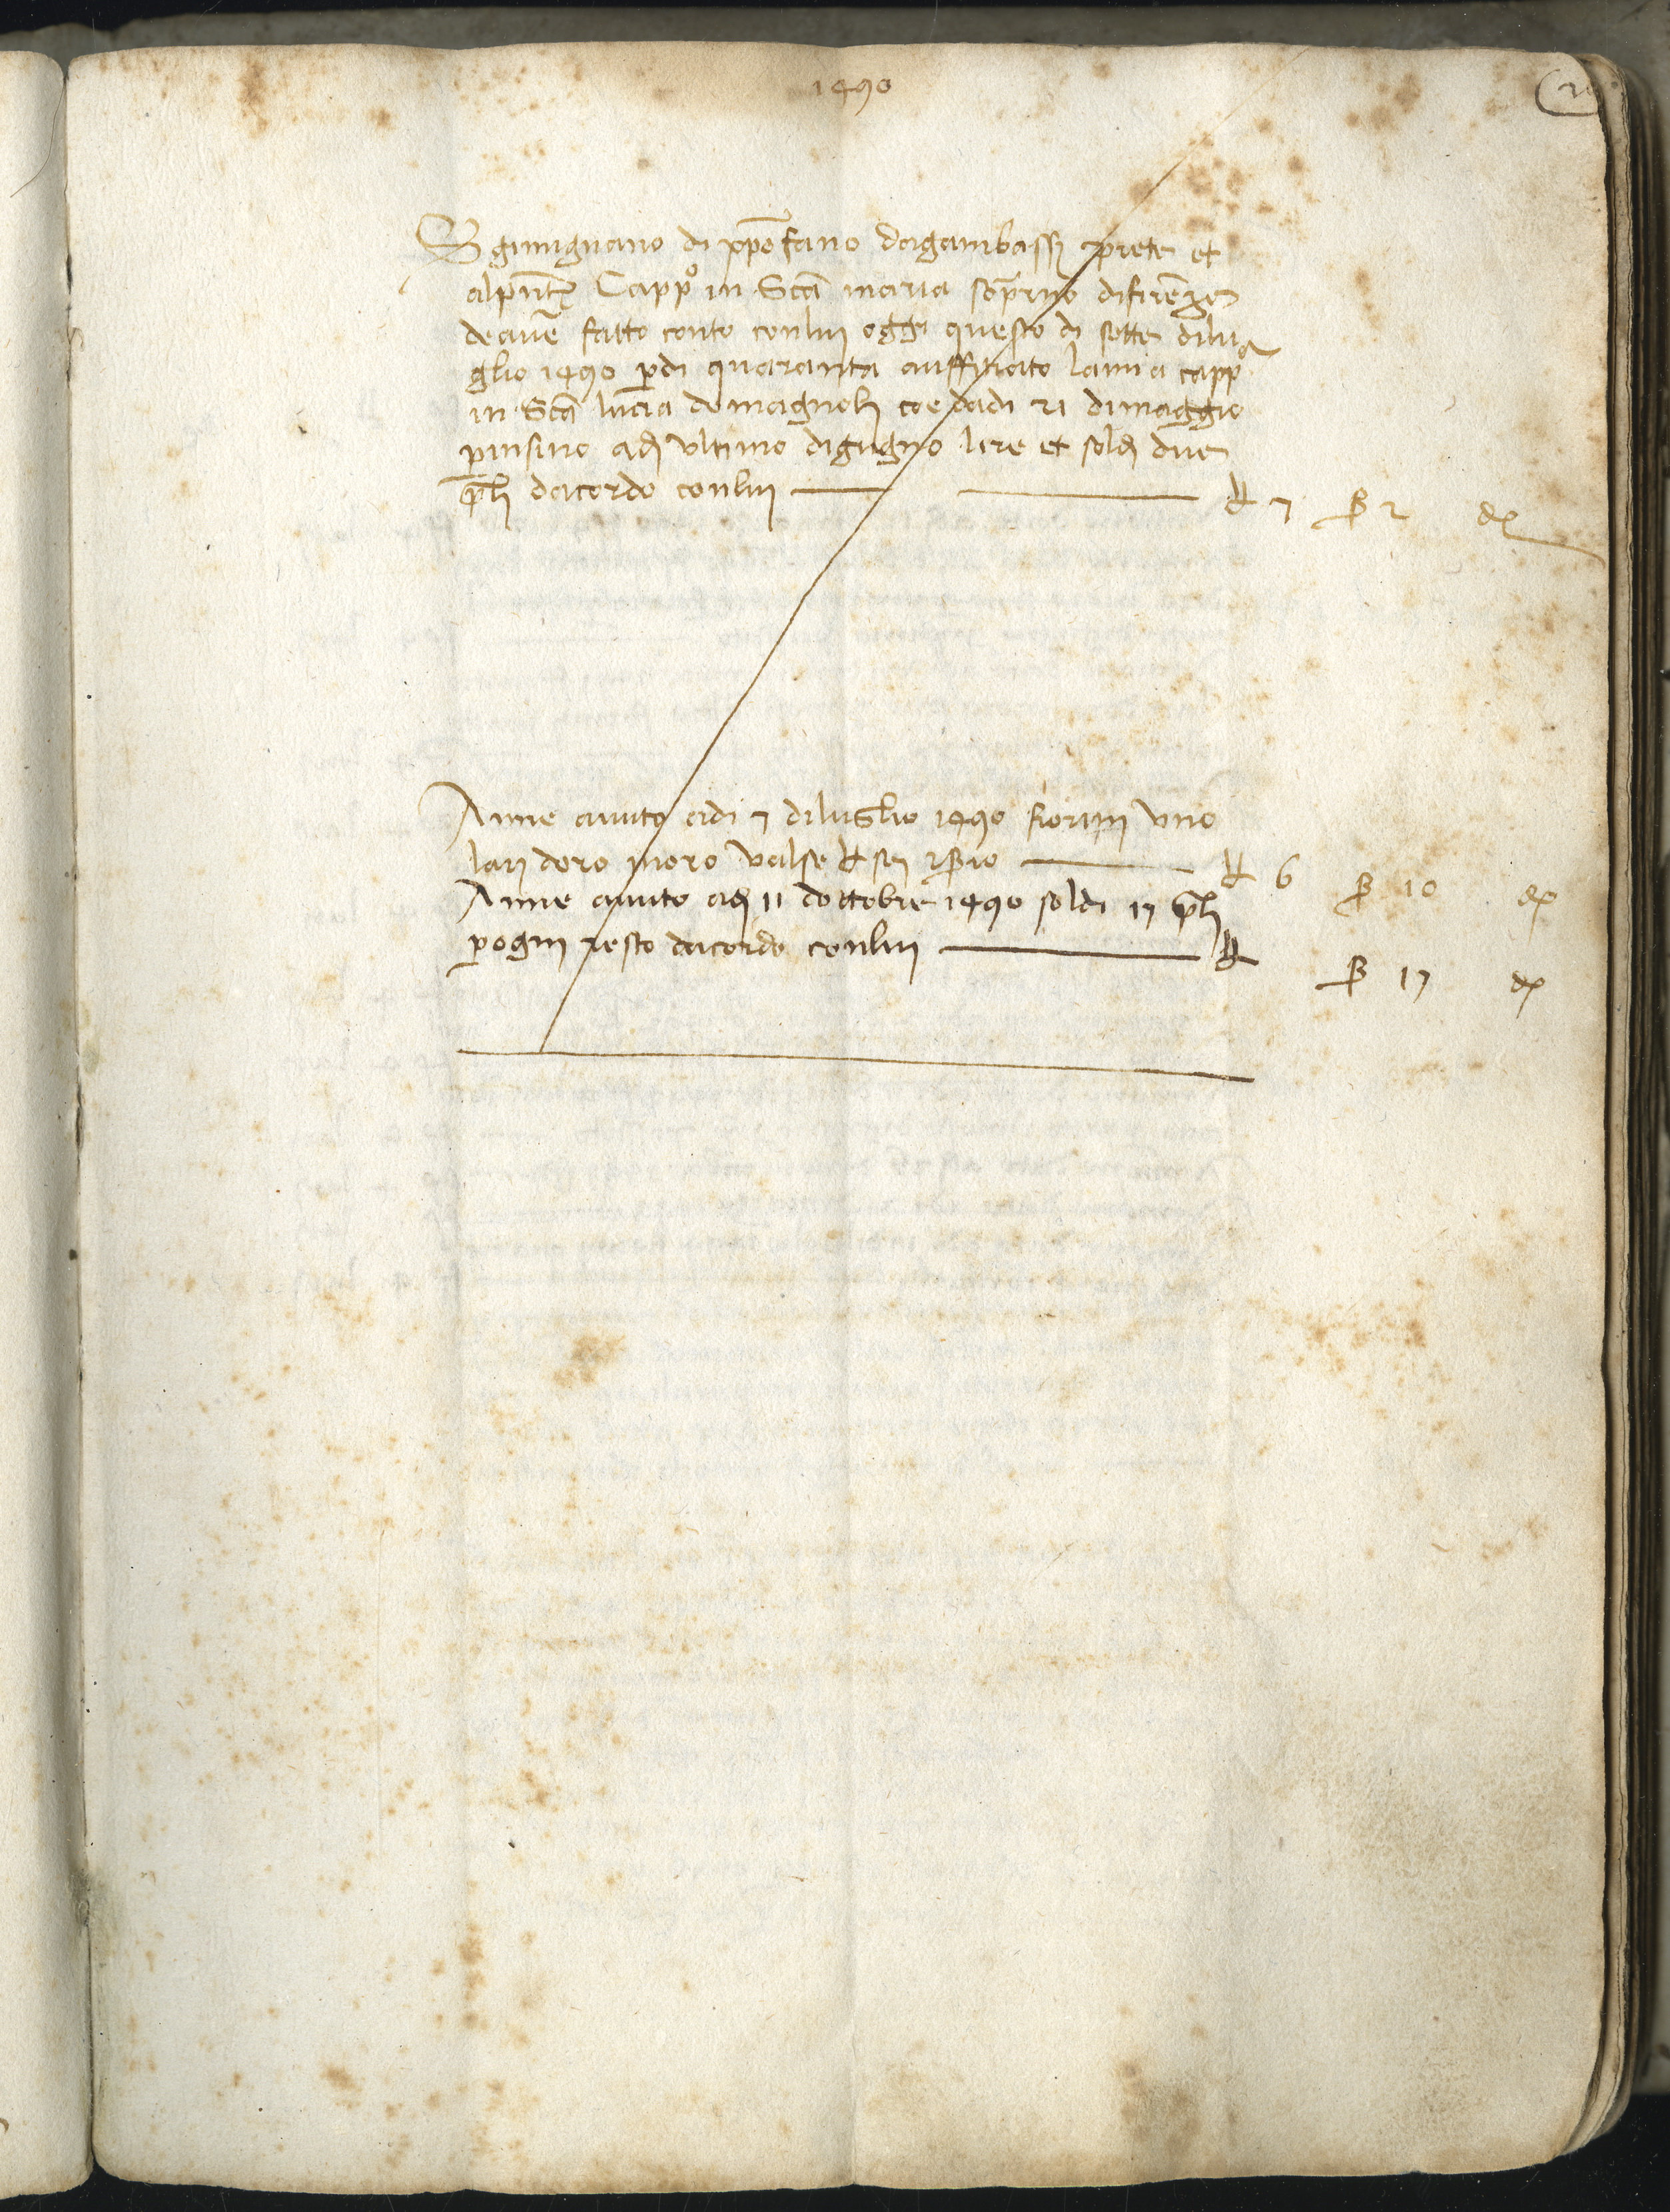 1490
S gimignano di xpofano dagambassi prete et
alpnte Capp° in Sca maria soprno difirenze
de ave fatto conto conlui oggi questo di sette dilu
glio 1490 p di quaranta auffitiato lamia capp
in Sca lucia demagnoli coe dadi 21 dimaggio
pinsino adi ultimo digugno lire et soldi due
pli dacordo conlui — — ₶ 7 ß 2 d
Anne auuto adi 7 diluglio 1490 fiorini uno
lar doro inoro valse ₶ sei s 10 — ₶ 6 ß 10 d
Anne auuto adi 11 dottobre 1490 soldi 17 pli
pogni resto dacordo conlui — ₶ ß 17 d